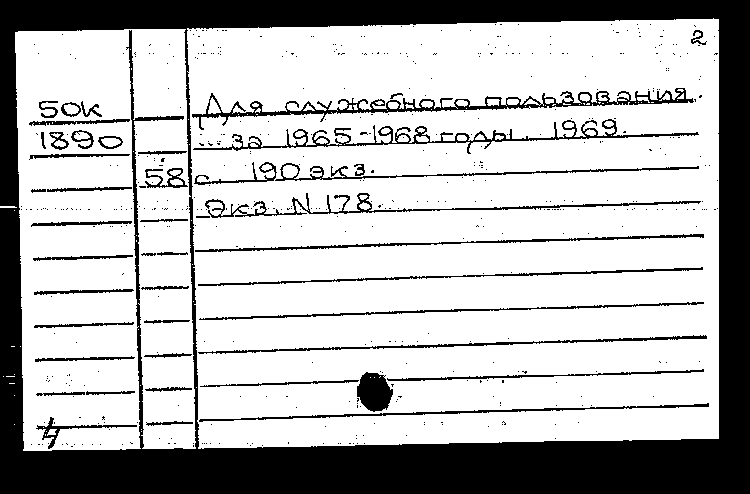 2
50к Для служебного пользования.
1890 ... за 1965-1968 годы. 1969.
58 с. 190 экз.
Экз. N 178.